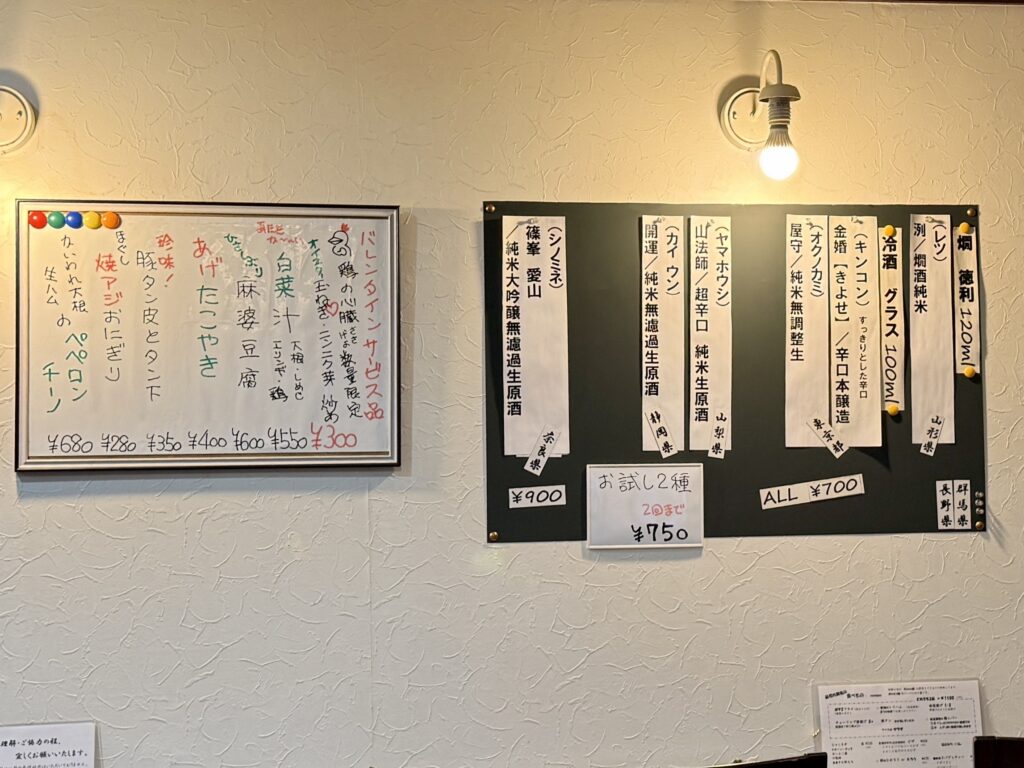 バレンタインサービス品
鶏の心臓ささげよ数量限定
オイスター玉ねぎ・ニンニク芽炒め
¥300
あたたか〜い
白菜汁
大根・しめじ
エリンギ・鶏
¥550
ひさしぶり
麻婆豆腐
¥600
あげたこやき
¥400
珍味!
豚タン皮とタン下
¥350
ほぐし
焼アジおにぎり
¥280
かいわれ大根
生ハムの
ペペロンチーノ
¥680
燗 徳利 120ml
(レツ)
洌/燗酒純米
山形県
冷酒 グラス 100ml
(キンコン) すっきりとした辛口
金婚【きよせ】/辛口本醸造
(オクノカミ)
屋守/純米無調整生
東京都
(ヤマホウシ)
山法師/超辛口 純米生原酒
山梨県
(カイウン)
開運/純米無濾過生原酒
静岡県
(シノミネ)
篠峯 愛山
/純米大吟醸無濾過生原酒
奈良県
¥900
ALL ¥700
お試し2種
2回まで
¥750
群馬県
長野県
理解・ご協力の程、
宜しくお願いいたします。